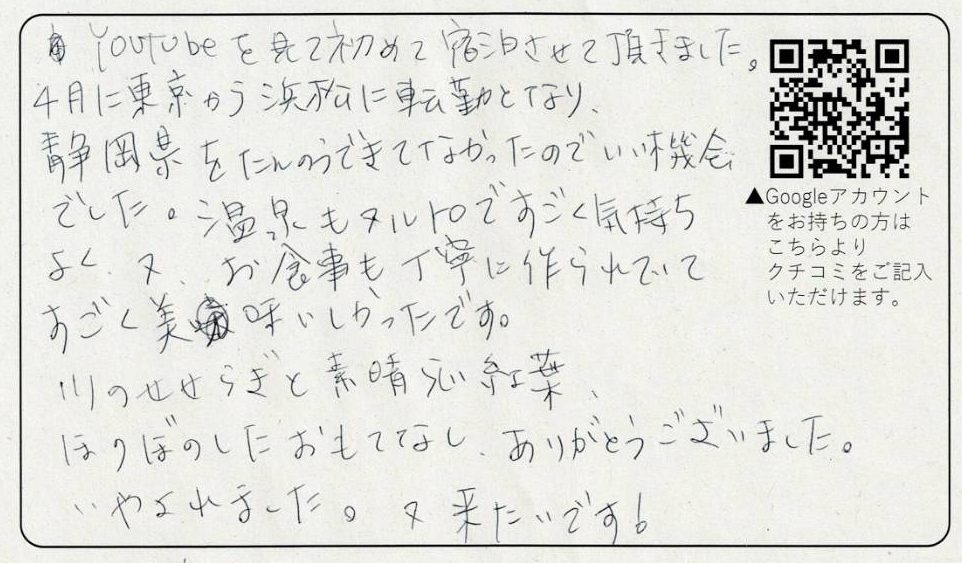 YouTubeを見て初めて宿泊させて頂きました。
4月に東京から浜松に転勤となり、
静岡県をたんのうできてなかったのでいい機会
でした。温泉もヌルトロですごく気持ち
よく、又、お食事も丁寧に作られていて
すごく美味いしかったです。
川のせせらぎと素晴らしい紅葉、
ほのぼのしたおもてなし、ありがとうございました。
いやされました。又来たいです!
▲Googleアカウント
をお持ちの方は
こちらより
クチコミをご記入
いただけます。